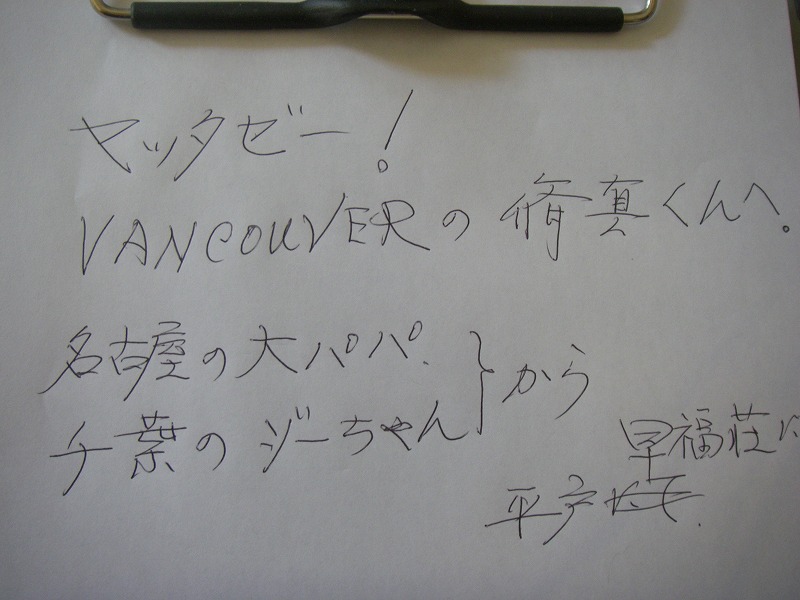 ヤッタゼー!
VANCOUVERの 脩真くんへ。
名古屋の大パパ.
千葉のジーちゃん } から
早福荘に
平戸にて.